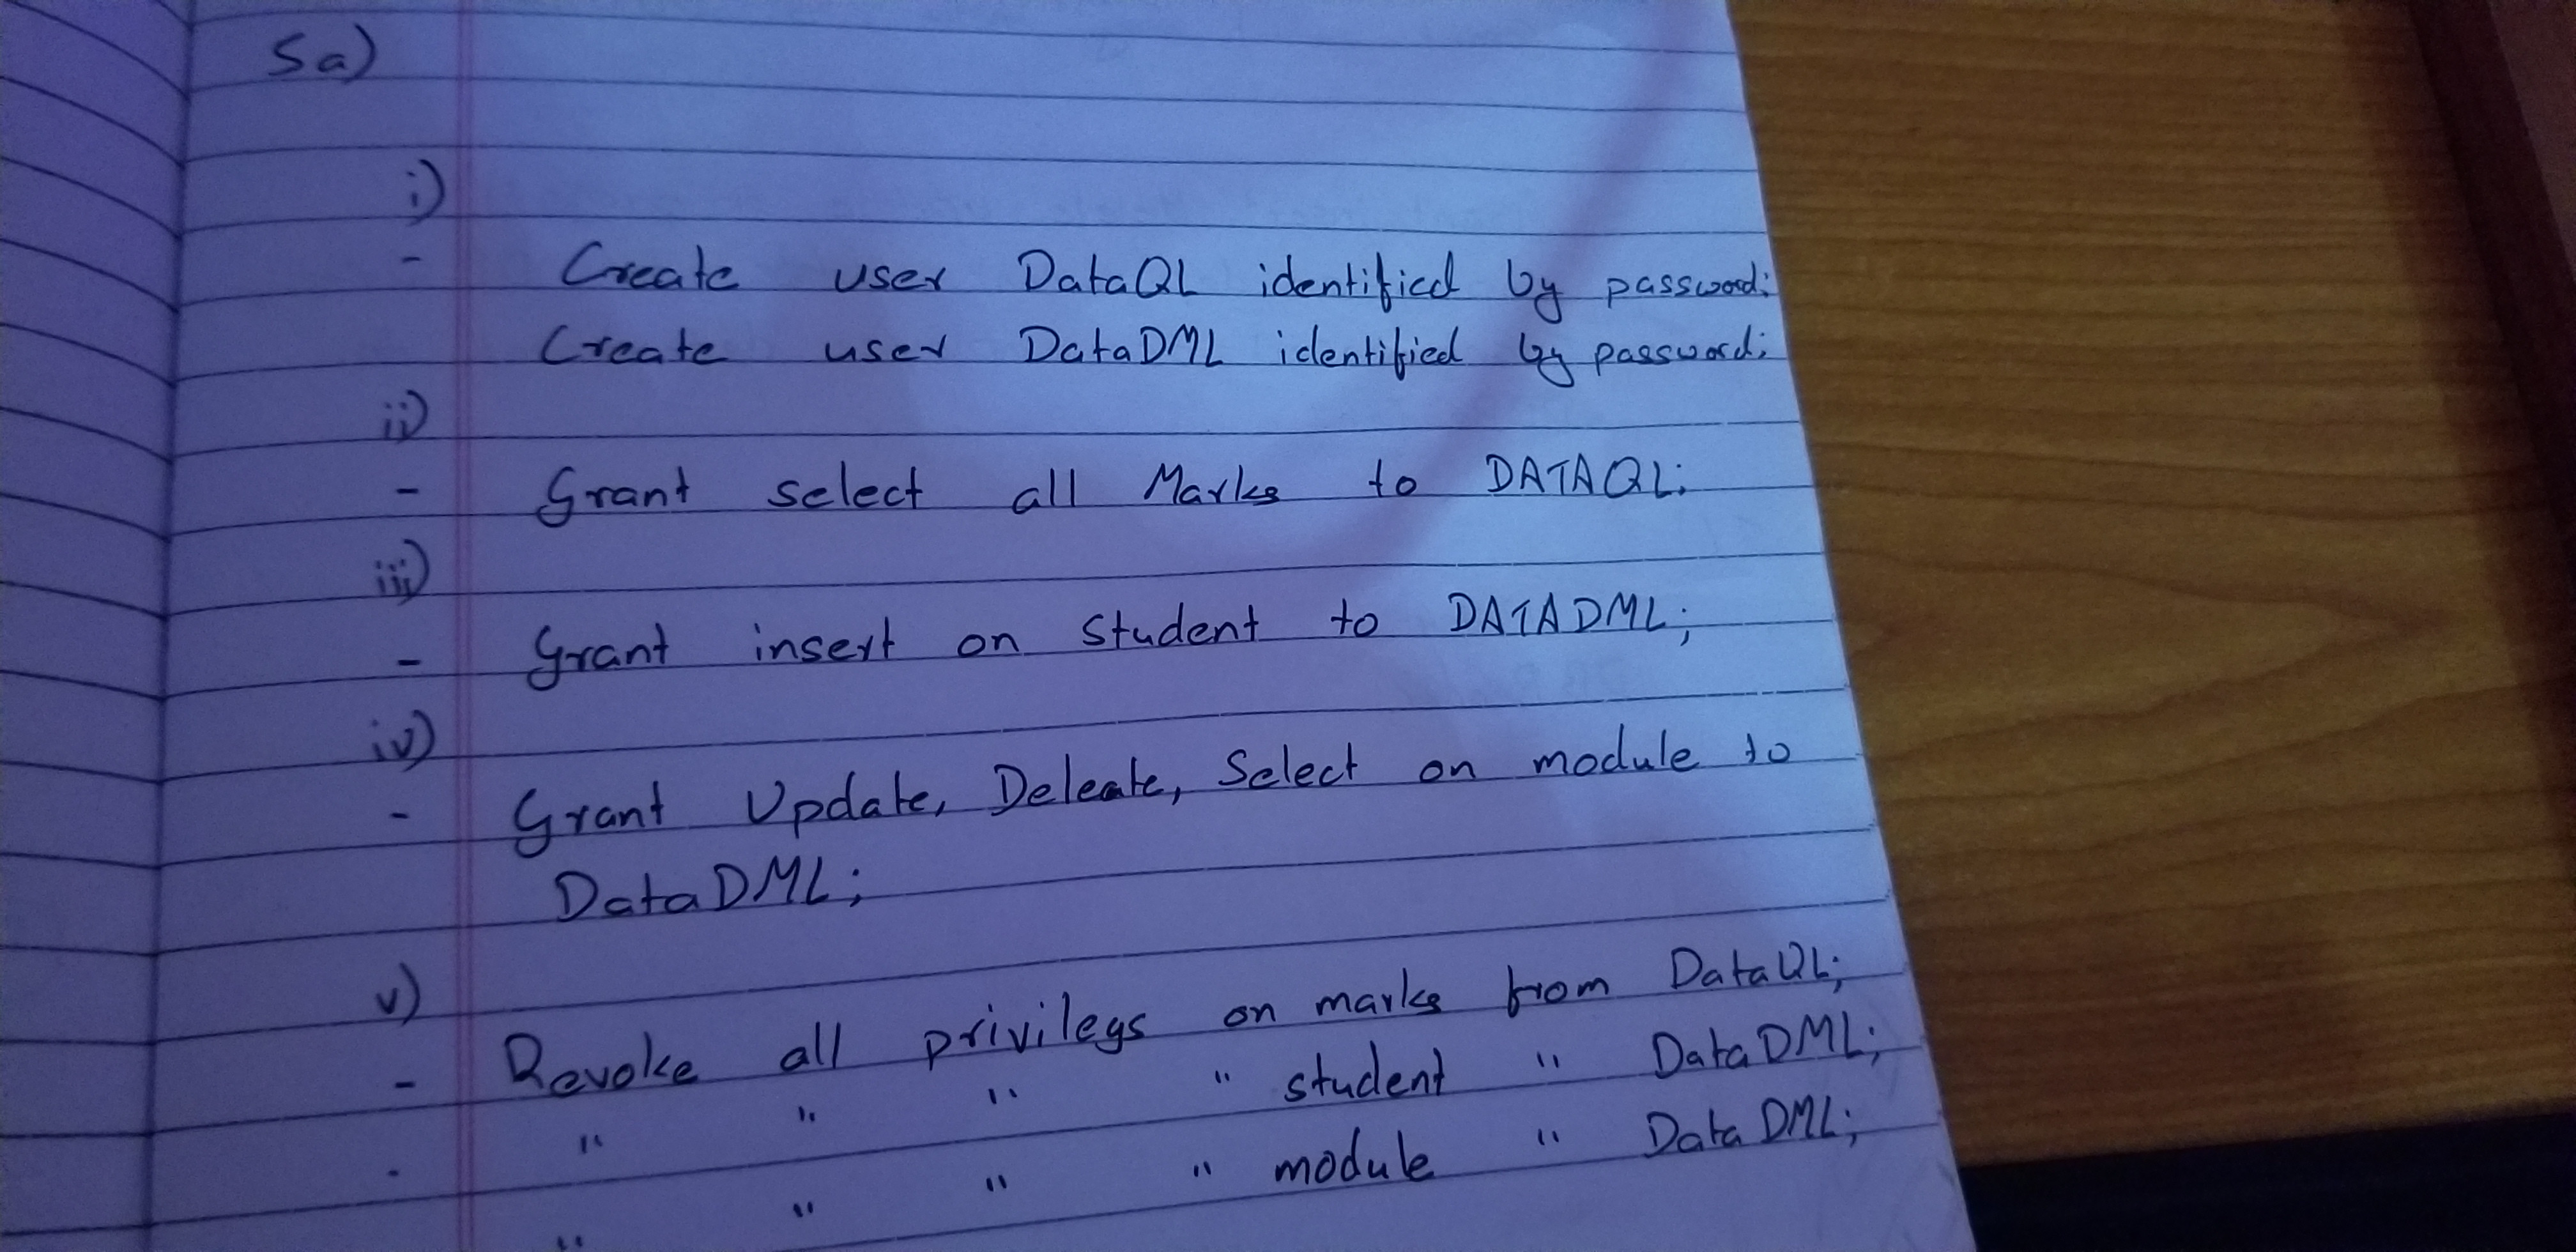 5a)
i)
- Create user DataQL identified by password;
Create user DataDML identified by password;
ii)
- Grant select all Marks to DATAQL;
iii)
- Grant insert on Student to DATADML;
iv)
- Grant Update, Deleate, Select on module to
DataDML;
v)
- Revoke all privilegs on marks from DataQL;
- " " " " student " DataDML;
" " " " module " DataDML;